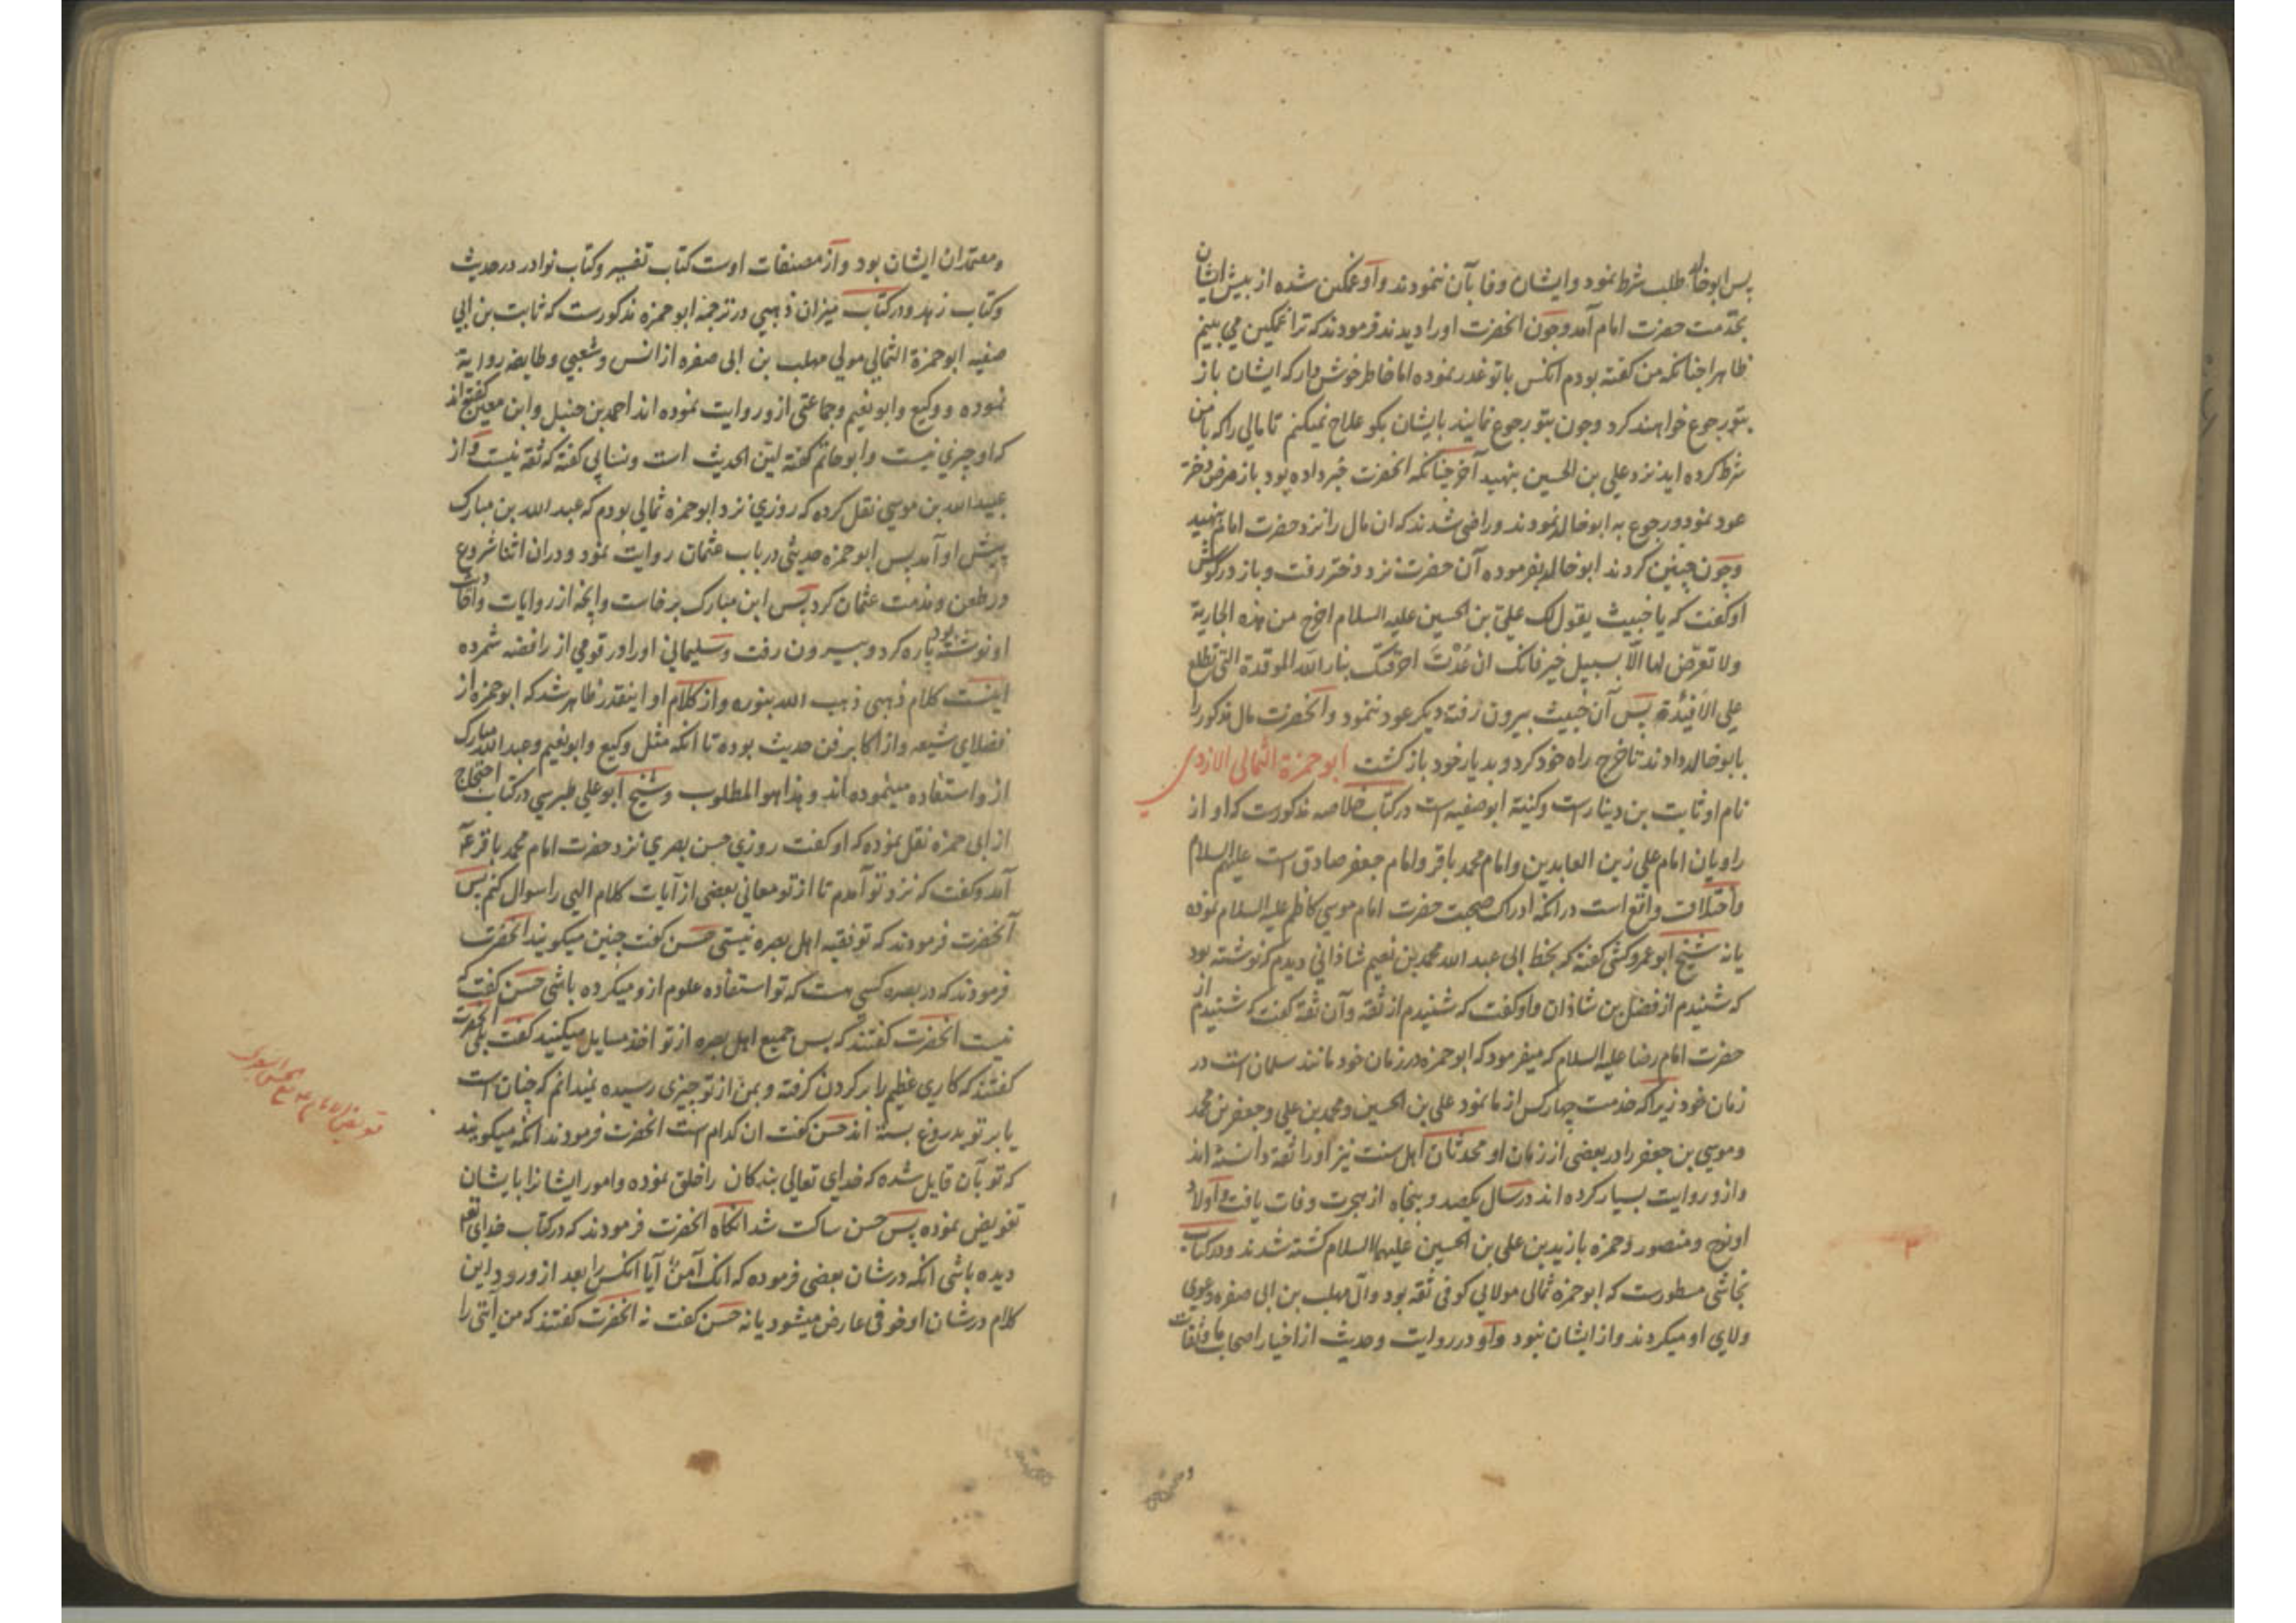 پس ابوخالد طلب شرط نمود و ایشان وفا بآن ننمودند و او غمکین شده از پیش ایشان
بخدمت حضرت امام آمد و چون انحضرت اورا دیدند فرمودند که ترا غمکین می بینم
ظاهرا چنانکه من کفته بودم انکس باتو غدر نموده اما خاطر خوش دار که ایشان باز
بتو رجوع خواهند کرد و چون بتو رجوع نمایند بایشان بکو علاج نمیکنم تا مالی را که بامن
شرط کرده اید نزد علی بن الحسین بنهید آخر چنانکه انحضرت خبر داده بود باز مرض دختر
عود نمود و رجوع به ابوخالد نمودند و راضی شدند که ان مال را نزد حضرت امام بنهند
و چون چنین کردند ابوخالد بفرموده آن حضرت نزد دختر رفت و باز در کوش
او کفت که یا خبیث یقول لک علی بن الحسین علیه السلام اخرج من هذه الجاریة
ولا تعرض لها الا بسبیل خیر فانک ان عُدْتَ احرقتک بنار الله الموقدة التی تطلع
علی الافئدة پس آن خبیث بیرون رفت و دیکر عود ننمود و آنحضرت مال مذکور را
بابوخالد دادند تا خرج راه خود کرد و بدیار خود باز کشت ابو حمزة الثمالی الازدی
نام او ثابت بن دینارست و کنیة ابوصفیه است در کتاب خلاصه مذکورست که او از
راویان امام علی زین العابدین و امام محمد باقر و امام جعفر صادق است علیهم السلام
و اختلاف واقع است در انکه ادراک صحبت حضرت امام موسی کاظم علیه السلام نموده
یا نه شیخ ابو عمرو کشی کفته که بخط ابی عبد الله محمد بن نعیم شاذانی دیدم که نوشته بود
که شنیدم از فضل بن شاذان و او کفت که شنیدم از ثقه و آن ثقه کفت که شنیدم از
حضرت امام رضا علیه السلام که میفرمود که ابوحمزه در زمان خود مانند سلمان است در
زمان خود زیرا که خدمت چهار کس از ما نمود علی بن الحسین و محمد بن علی و جعفر بن محمد
و موسی بن جعفر را در بعضی از زمان او محدثان اهل سنت نیز اورا ثقه دانسته اند
و ازو روایت بسیار کرده اند در سال یکصد و پنجاه از هجرت وفات یافت و اولاد
او نوح و منصور و حمزه با زید بن علی بن الحسین علیهما السلام کشته شدند و در کتاب
نجاشی مسطورست که ابوحمزه ثمالی مولایی کوفی ثقه بود و آل مهلب بن ابی صفره دعوی
ولای او میکردند و از ایشان نبود و او در روایت و حدیث از اخیار اصحاب ما و ثقات
و معتمدان ایشان بود و از مصنفات اوست کتاب تفسیر و کتاب نوادر در حدیث
و کتاب زهد و در کتاب میزان ذهبی در ترجمه ابوحمزه مذکورست که ثابت بن ابی
صفیه ابوحمزة الثمالی مولی مهلب بن ابی صفره از انس و شعبی و طایفه روایة
نموده و وکیع و ابونعیم و جماعتی ازو روایت نموده اند احمد بن حنبل و ابن معین کفته اند
که او چیزی نیست و ابوحاتم کفته لین الحدیث است و نسایی کفته که ثقه نیست و از
عبید الله بن موسی نقل کرده که روزی نزد ابوحمزه ثمالی بودم که عبد الله بن مبارک
پیش او آمد پس ابوحمزه حدیثی در باب عثمان روایت نمود و در ان اثنا شروع
در طعن و مذمت عثمان کرد پس ابن مبارک برخاست و انچه از روایات
او نوشته بود پاره کرد و بیرون رفت و سلیمانی اورا در قومی از رافضه شمرده
اینست کلام ذهبی ذهب الله بنوره و از کلام او اینقدر ظاهر شد که ابوحمزه از
فضلای شیعه و از اکابر فن حدیث بوده تا انکه مثل وکیع و ابونعیم و عبد الله مبارک
ازو استفاده مینموده اند و هذا هو المطلوب و شیخ ابو علی طبرسی در کتاب احتجاج
از ابی حمزه نقل نموده که او کفت روزی حسن بصری نزد حضرت امام محمد باقر ع
آمد و کفت که نزد تو آمدم تا از تو معانی بعضی از آیات کلام الهی را سوال کنم پس
آنحضرت فرمودند که تو فقیه اهل بصره نیستی حسن کفت چنین میکویند انحضرت
فرمودند که در بصره کسی هست که تو استفاده علوم ازو میکرده باشی حسن کفت که
نیست انحضرت کفتند که پس جمیع اهل بصره از تو اخذ مسایل میکنند کفت بلی انحضرت
کفتند که کاری عظیم را بر کردن کرفته و بمن از تو چیزی رسیده نمیدانم که چنان است
یا بر تو بدروغ بسته اند حسن کفت ان کدام است انحضرت فرمودند انکه میکویند
که تو بآن قایل شده که خدای تعالی بندکان را خلق نموده و امور ایشانرا بایشان
تفویض نموده پس حسن ساکت شد انکاه انحضرت فرمودند که در کتاب خدای تع
دیده باشی انکه در شان بعضی فرموده که انک آمن آیا انکس را بعد از ورود این
کلام در شان او خوفی عارض میشود یا نه حسن کفت نه انحضرت کفتند که من آیتی را